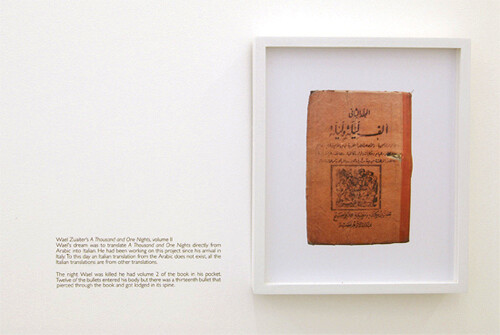 Wael Zuaiter's A Thousand and One Nights, volume II
Wael's dream was to translate A Thousand and One Nights directly from
Arabic into Italian. He had been working on this project since his arrival in
Italy. To this day an Italian translation from the Arabic does not exist, all the
Italian translations are from other translations.
The night Wael was killed he had volume 2 of the book in his pocket.
Twelve of the bullets entered his body but there was a thirteenth bullet that
pierced through the book and got lodged in its spine.
المجلد الثاني
الف ليلة وليلة